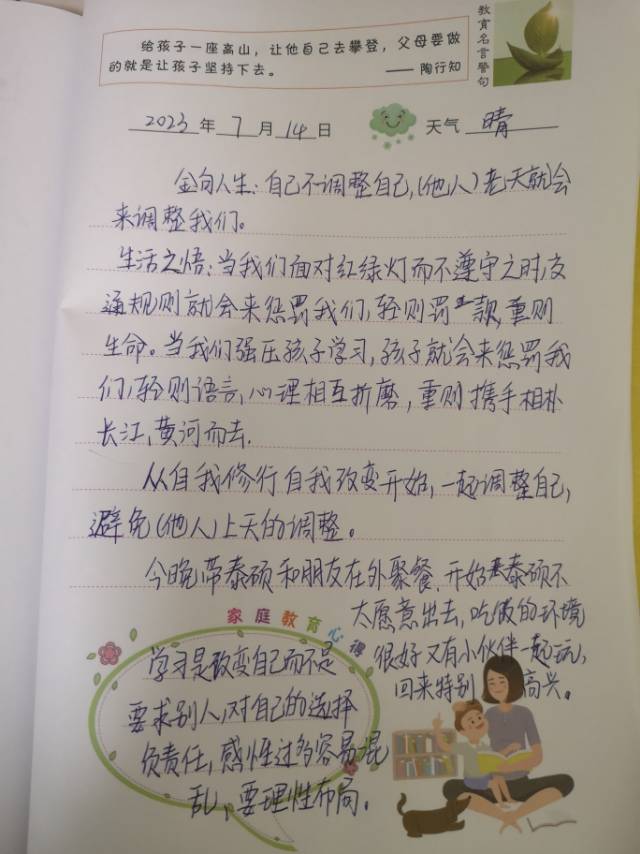 给孩子一座高山，让他自己去攀登，父母要做
的就是让孩子坚持下去。
—— 陶行知
教育名言警句
2023 年 7 月 14 日 天气 晴
金句人生：自己不调整自己，(他人)老天就会
来调整我们。
生活之悟：当我们面对红绿灯而不遵守之时，交
通规则就会来惩罚我们，轻则罚款，重则
生命。当我们强压孩子学习，孩子就会来惩罚我
们，轻则语言，心理相互折磨，重则携手相扑
长江，黄河而去.
从自我修行自我改变开始，一起调整自己，
避免(他人)上天的调整。
今晚带泰硕和朋友在外聚餐，开始泰硕不
太愿意出去，吃饭的环境
很好又有小伙伴一起玩，
回来特别高兴。
家庭教育心得
学习是改变自己而不是
要求别人，对自己的选择
负责任，感性过多容易混
乱，要理性布局。